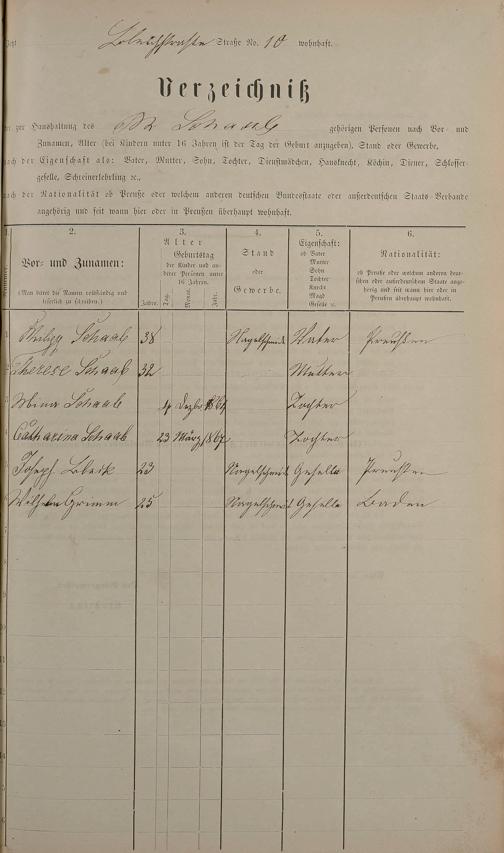 Straße No. 10 wohnhaft.
Verzeichniß
zur Haushaltung des Schaab gehörigen Personen nach Vor- und
Zunamen, Alter (bei Kindern unter 16 Jahren ist der Tag der Geburt anzugeben), Stand oder Gewerbe,
nach der Eigenschaft als: Vater, Mutter, Sohn, Tochter, Dienstmädchen, Hausknecht, Köchin, Diener, Schlosser-
geselle, Schreinerlehrling ꝛc.,
nach der Nationalität ob Preuße oder welchem anderen deutschen Bundesstaate oder außerdeutschen Staats-Verbande
angehörig und seit wann hier oder in Preußen überhaupt wohnhaft.
1. 2. 3. 4. 5. 6.
Nummer.
Vor- und Zunamen:
(Man bittet die Namen vollständig und
leserlich zu schreiben.)
Alter
Geburtstag
der Kinder und an-
derer Personen unter
16 Jahren.
Jahre. Tag. Monat. Jahr.
Stand
oder
Gewerbe.
Eigenschaft:
ob Vater
Mutter
Sohn
Tochter
Knecht
Magd
Geselle ꝛc.
Nationalität:
ob Preuße oder welchem anderen deut-
schen oder außerdeutschen Staate ange-
hörig und seit wann hier oder in
Preußen überhaupt wohnhaft.
Philipp Schaab 38 Nagelschmied Vater Preußen
Therese Schaab 32 Mutter
Mina Schaab 4 Dezbr 1864 Tochter
Catharina Schaab 23 März 1867 Tochter
Joseph 23 Nagelschmied Geselle Preußen
Wilhelm Grimm 25 Nagelschmied Geselle Baden